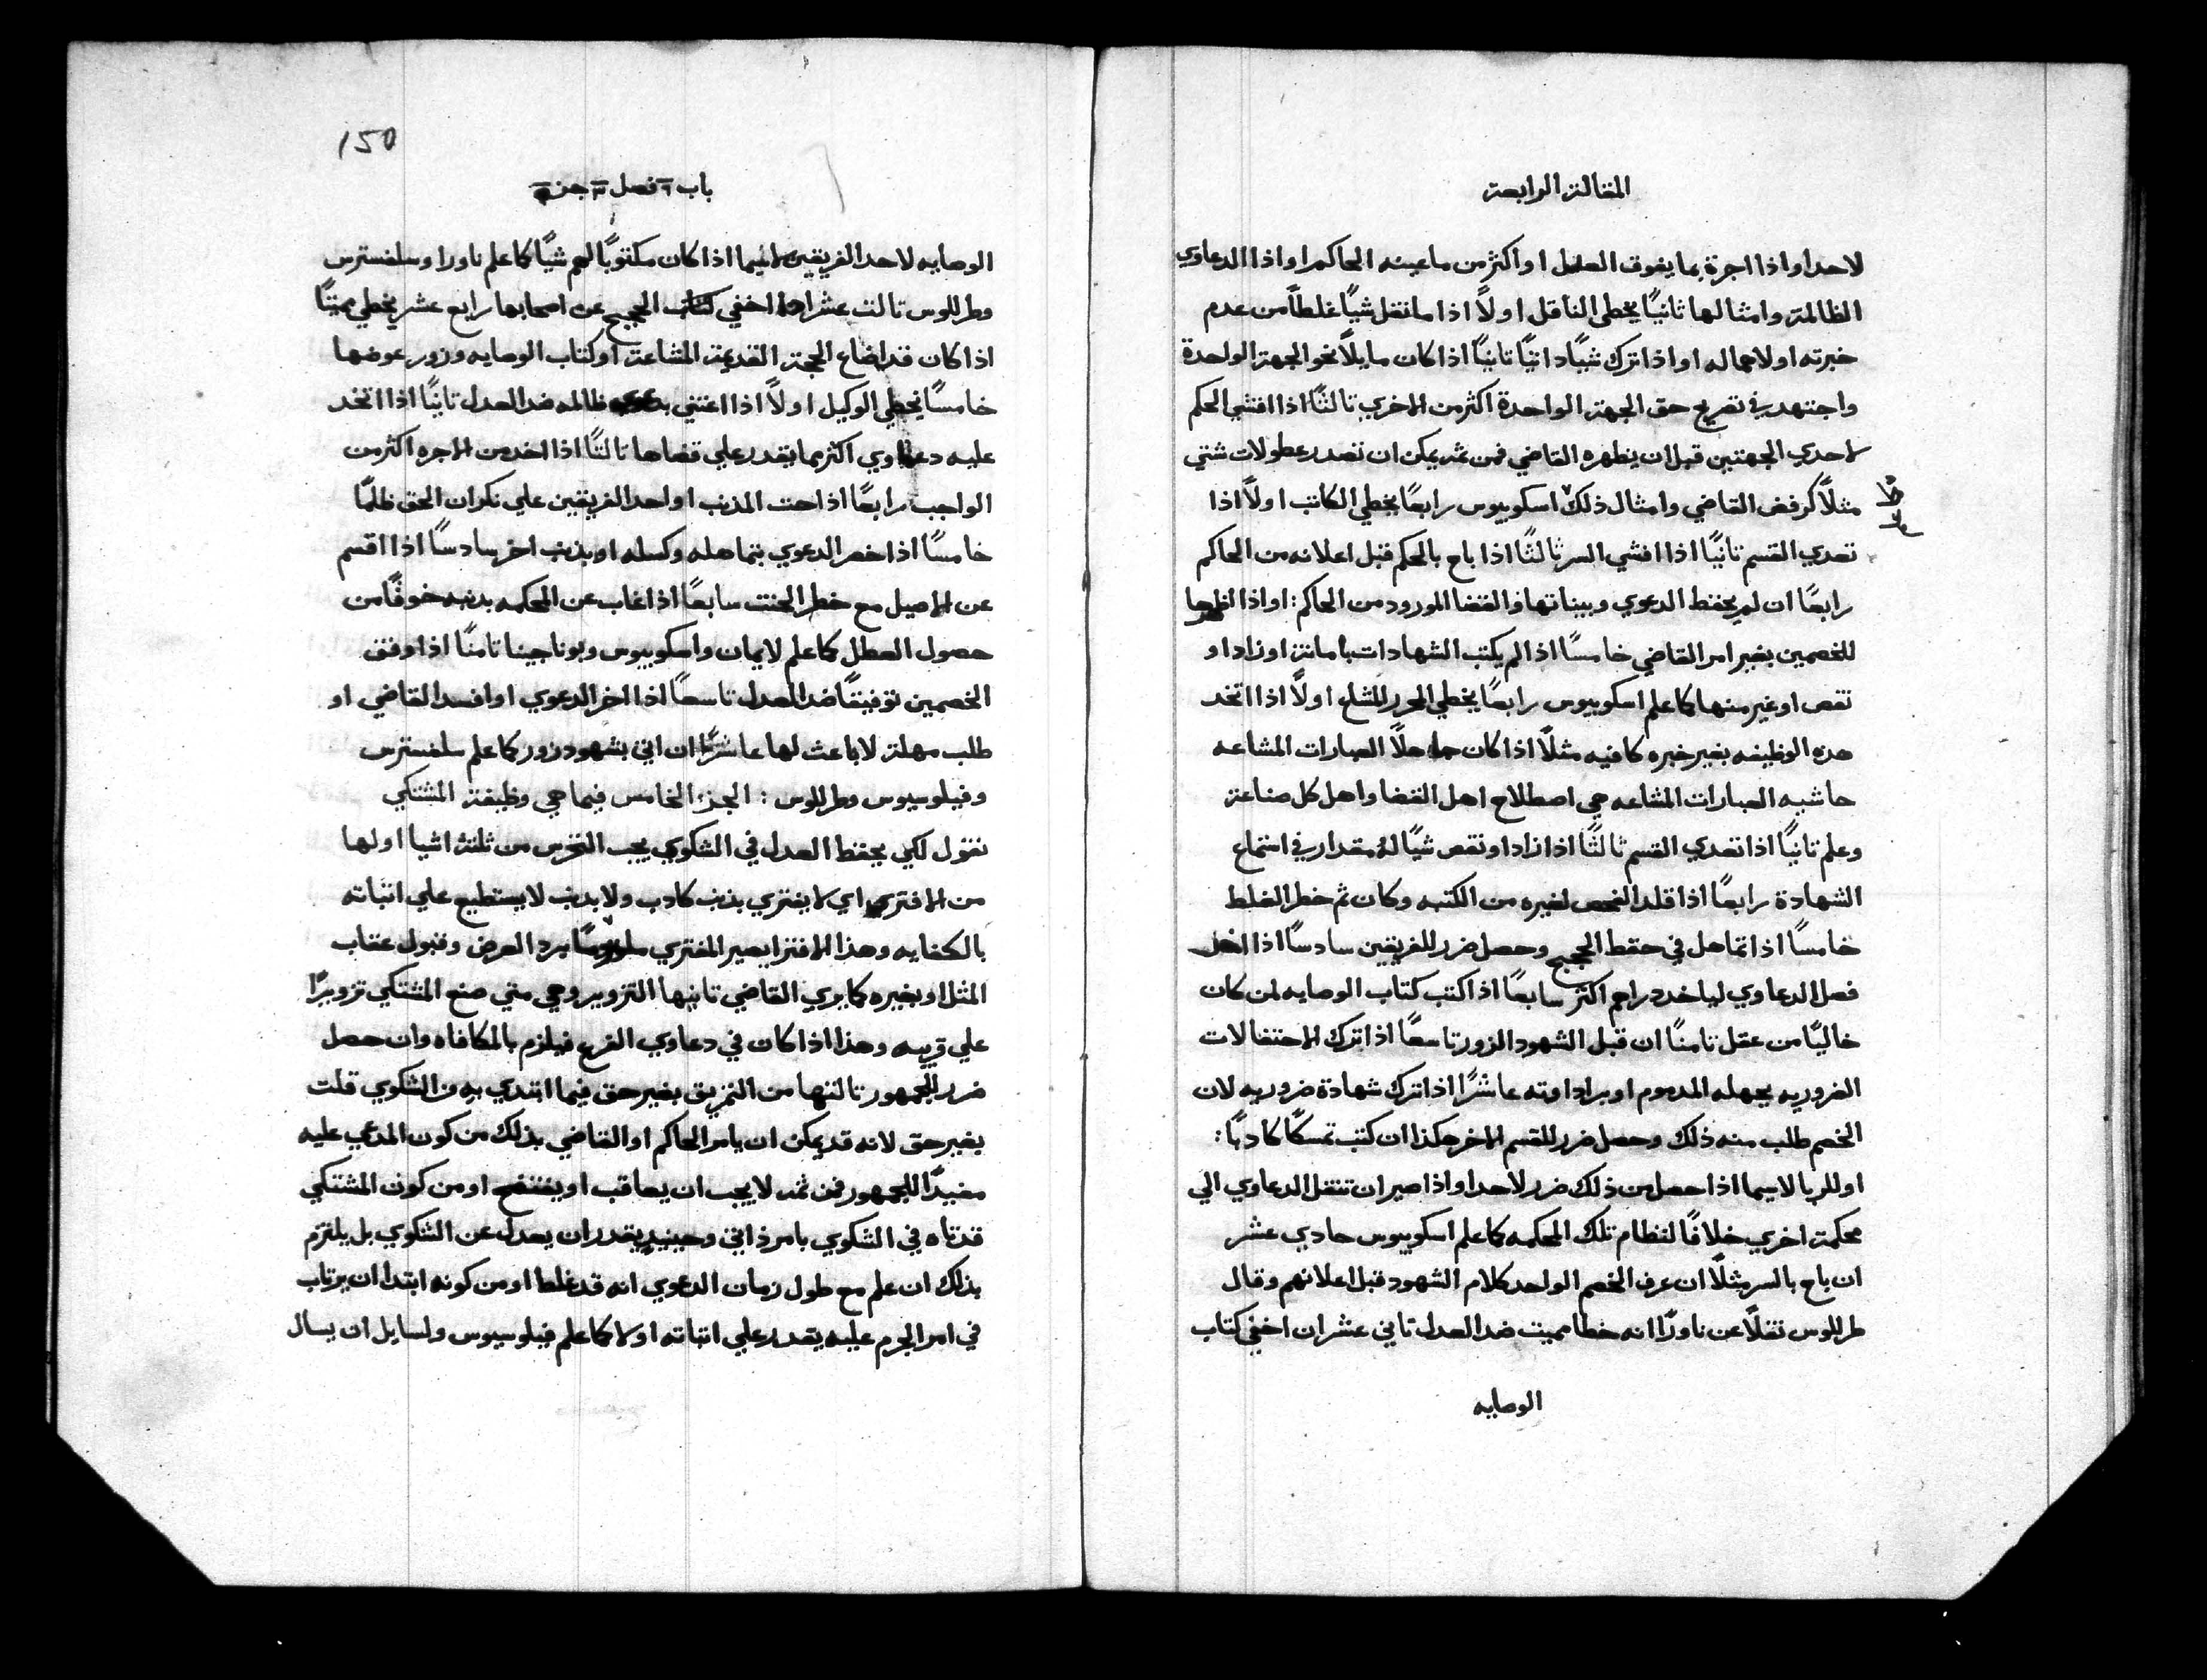 المقالة الرابعة
لاحد او اذا اجرة بما يفوق العدل او اكثر من ما عينه الحاكم او اذا الدعاوي
الظالمة وامثالها ثانيًا يخطي الناقل اولاً اذا ما نقل شيًا غلطًا من عدم
خبرته او لاهماله او اذا ترك شيًا داتيًا تانيًا اذا كان مايلاً نحو الجهة الواحدة
واجتهد في تصريح حق الجهة الواحدة اكثر من الاخري تالتًا اذا افشي الحكم
لاحدي الجهتين قبل ان يظهره القاضي فمن ثم يمكن ان تصدر عطولات شتي
مثلاً كرفض القاضي وامثال ذلك اسكوبيوس رابعًا يخطي الكاتب اولاً اذا
تعدي القسم تانيًا اذا افشي السر ثالثًا اذا باح بالحكم قبل اعلانه من الحاكم
رابعًا ان لم يحفظ الدعوي وبيناتها والقضا المورود من الحاكم : او اذا اظهرها
للخصمين بغير امر القاضي خامسًا اذا لم يكتب الشهادات بامانة او زاد او
نقص او غير منها كما علم اسكوبيوس رابعًا يخطي المحرر للشلع اولاً اذا اتخد
هده الوظيفه بغير خبره كافيه مثلاً اذا كان جاهلاً العبارات المشاعه
حاشيه العبارات المشاعه هي اصطلاح اهل القضا واهل كل صناعة
وعلم تانيًا اذا تعدي القسم ثالثًا اذا زاد او نقص شيًا لهُ مقدار في استماع
الشهادة رابعًا اذا قلد الفحص لغيره من الكتبه وكان ثم خطر الغلط
خامسًا اذا تماهل في حفظ الحجج وحصل ضرر للفريقين سادسًا اذا
فصل الدعاوي لياخد دراهم اكثر سابعًا اذا كتب كتاب الوصايه لمن كان
خاليًا من عقل تامنًا ان قبل الشهود الزور تاسعًا اذا ترك الاحتفالات
الضروريه بجهله المدموم او براداوته عاشرًا اذا ترك شهادة ضروريه لان
الخصم طلب منه ذلك وحصل ضرر للقسم الاخر هكذا ان كتب تمسكًا كادبًا :
او للربا لاسيما اذا حصل من ذلك ضرر لاحد او اذا صير ان تنتقل الدعاوي الي
محكمة اخري خلافًا لنظام تلك المحكمه كما علم اسكوبيوس حادي عشر
ان باح بالسر مثلاً ان عرف الخصم الواحد كلام الشهود قبل اعلانهم وقال
طرللوس نقلاً عن ناورًا انه خطا مميت ضد العدل تاني عشر ان اخفي كتاب
الوصايه
150
باب ٦ فصل ٣ جز ٥
الوصايه لاحد الفريقين لاسيما اذا كان مكتوبًا لهم شيًا كما علم ناورا وسلفسترس
وطرللوس تالت عشر اذا اخفي كتاب الحجج عن اصحابها رابع عشر يخطي مميتًا
اذا كان قد اضاع الحجة القديمة المشاعة او كتاب الوصايه وزور عوضها
خامسًا يخطي الوكيل اولاً اذا اعتني بدعوي ظالمه ضد العدل تانيًا اذا اتخد
عليه دعاوي اكثر مما يقدر علي قضاها تالتًا اذا اخد من الاجره اكثر من
الواجب رابعًا اذا حت المدنب او احد الفريقين علي نكران الحق ظلمًا
خامسًا اذا خصر الدعوي بتماهله وكسله او بذنب اخر سادسًا اذا اقسم
عن الاصيل مع خطر الحنت سابعًا اذا غاب عن المحكمه بدنبه خوفًا من
حصول العطل كما علم لايمان واسكوبيوس وبوناجينا تامنًا اذا وفق
الخصمين توفيقًا ضد العدل تاسعًا اذا اخر الدعوي او افسد القاضي او
طلب مهلة لا باعث لها عاشرًا ان اتي بشهود زور كما علم سلفسترس
وفيلوسيوس وطرللوس : الجز الخامس فيما هي وظيفة المشتكي
نقول لكي يحفظ العدل في الشكوي يجب التحرس من ثلثة اشيا اولها
من الافتري اي لا يفتري بذنب كادب ولا بدنب لا يستطيع علي اتباته
بالكفايه وهذا الافترا يصير المفتري ملزومًا برد العرض وقبول عقاب
المثل او بغيره كما يري القاضي تانيها التزوير وهي متي صنع المشتكي تزويرًا
علي قريبه وهذا اذا كان في دعاوي الفرع فيلزم بالمكافاه وان حصل
ضرر للجمهور تالتها من التمزيق بغير حق فيما ابتدي به من الشكوي قلت
بغير حق لانه قد يمكن ان يامر الحاكم او القاضي بذلك من كون المدعي عليه
مفيدًا للجمهور فمن ثم لا يجب ان يعاقب او يفتضح او من كون المشتكي
قد تاه في الشكوي بامر ذاتي وحينيد يقدر ان يعدل عن الشكوي بل يلتزم
بذلك ان علم مع طول زمان الدعوي انه قد غلط او من كونه ابتدا ان يرتاب
في امر الجرم عليه يقدر علي اتباته او لا كما علم فيلوسيوس ولسايل ان يسال